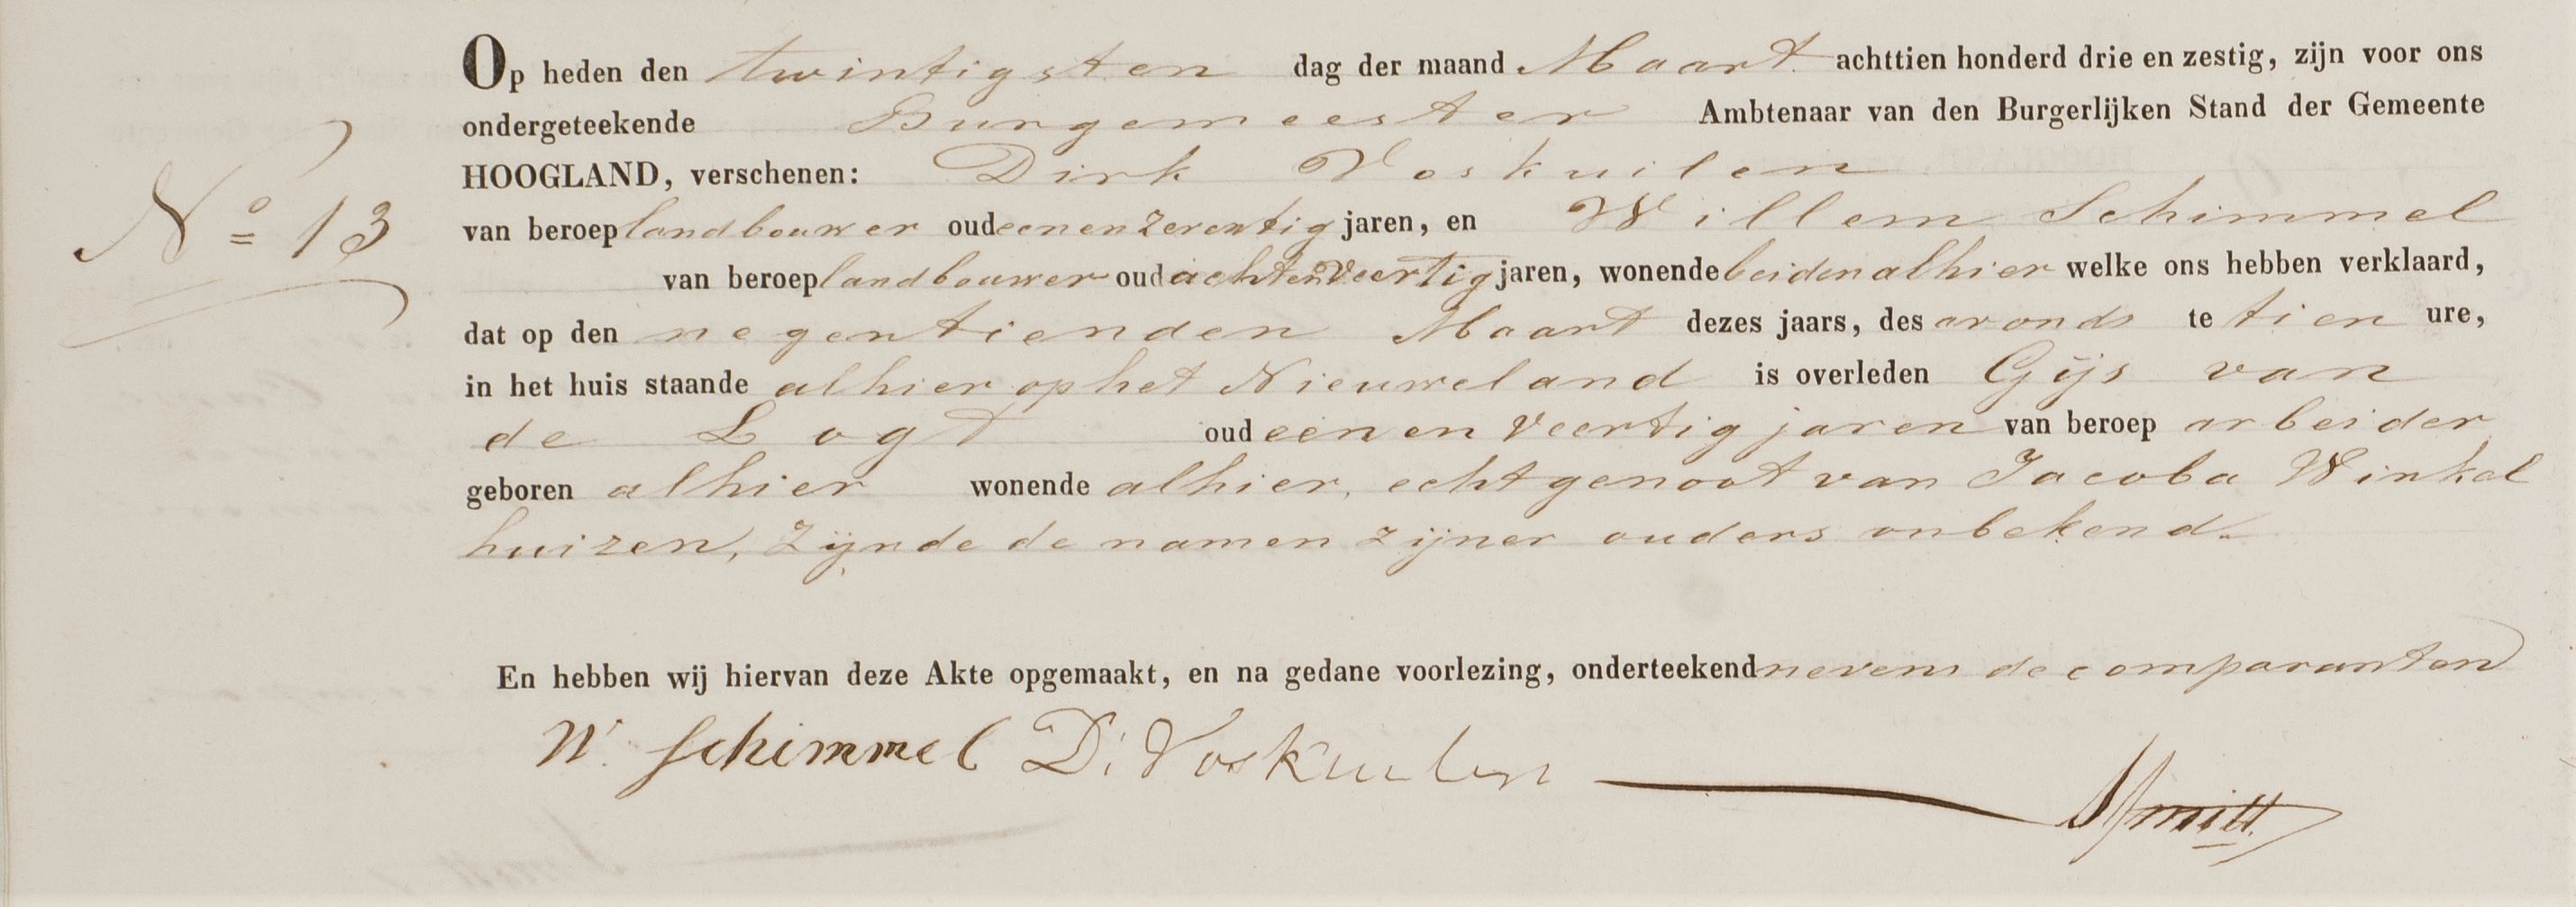 Op heden den twintigsten dag der maand Maart achttien honderd drie en zestig, zijn voor ons
ondergeteekende Burgemeester Ambtenaar van den Burgerlijken Stand der Gemeente
HOOGLAND, verschenen: Dirk Voskuilen
No 13
van beroep landbouwer oud eenenzeventig jaren, en Willem Schimmel
van beroep landbouwer oud achtenveertig jaren, wonende beiden alhier welke ons hebben verklaard,
dat op den negentienden Maart dezes jaars, des avonds te tien ure,
in het huis staande alhier op het Nieuweland is overleden Gijs van
de Logt oud een en veertig jaren van beroep arbeider
geboren alhier wonende alhier, echtgenoot van Jacoba Winkel
huizen, zijnde de namen zijner ouders onbekend.
En hebben wij hiervan deze Akte opgemaakt, en na gedane voorlezing, onderteekend nevens de comparanten
W. Schimmel D. Voskuilen Smitt